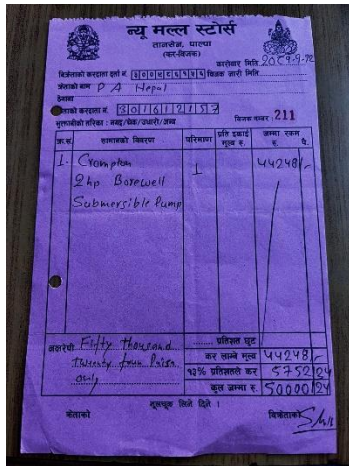 न्यू मल्ल स्टोर्स
तानसेन, पाल्पा
(कर-बिजक)
कारोबार मिति 2059-9-12
बिक्रेताको करदाता दर्ता नं. बिजक जारी मिति
क्रेताको नाम P A Nepal
ठेगाना
क्रेताको करदाता नं. 301612157
भुक्तानीको तरिका : नगद/चेक/उधारो/अन्य बिजक नम्बर 211
क्र.सं. सामानको विवरण परिमाण प्रति इकाई मूल्य रु. जम्मा रकम रु. पै.
1. Crompton 1 44248/-
2hp Borewell
Submersible Pump
अक्षरेपी Fifty thousand
twenty four Paisa
only
प्रतिशत छुट
कर लाग्ने मूल्य 44248/-
१३% प्रतिशतले कर 5752 24
कुल जम्मा रु. 50000 24
भूलचूक लिने दिने ।
क्रेताको बिक्रेताको